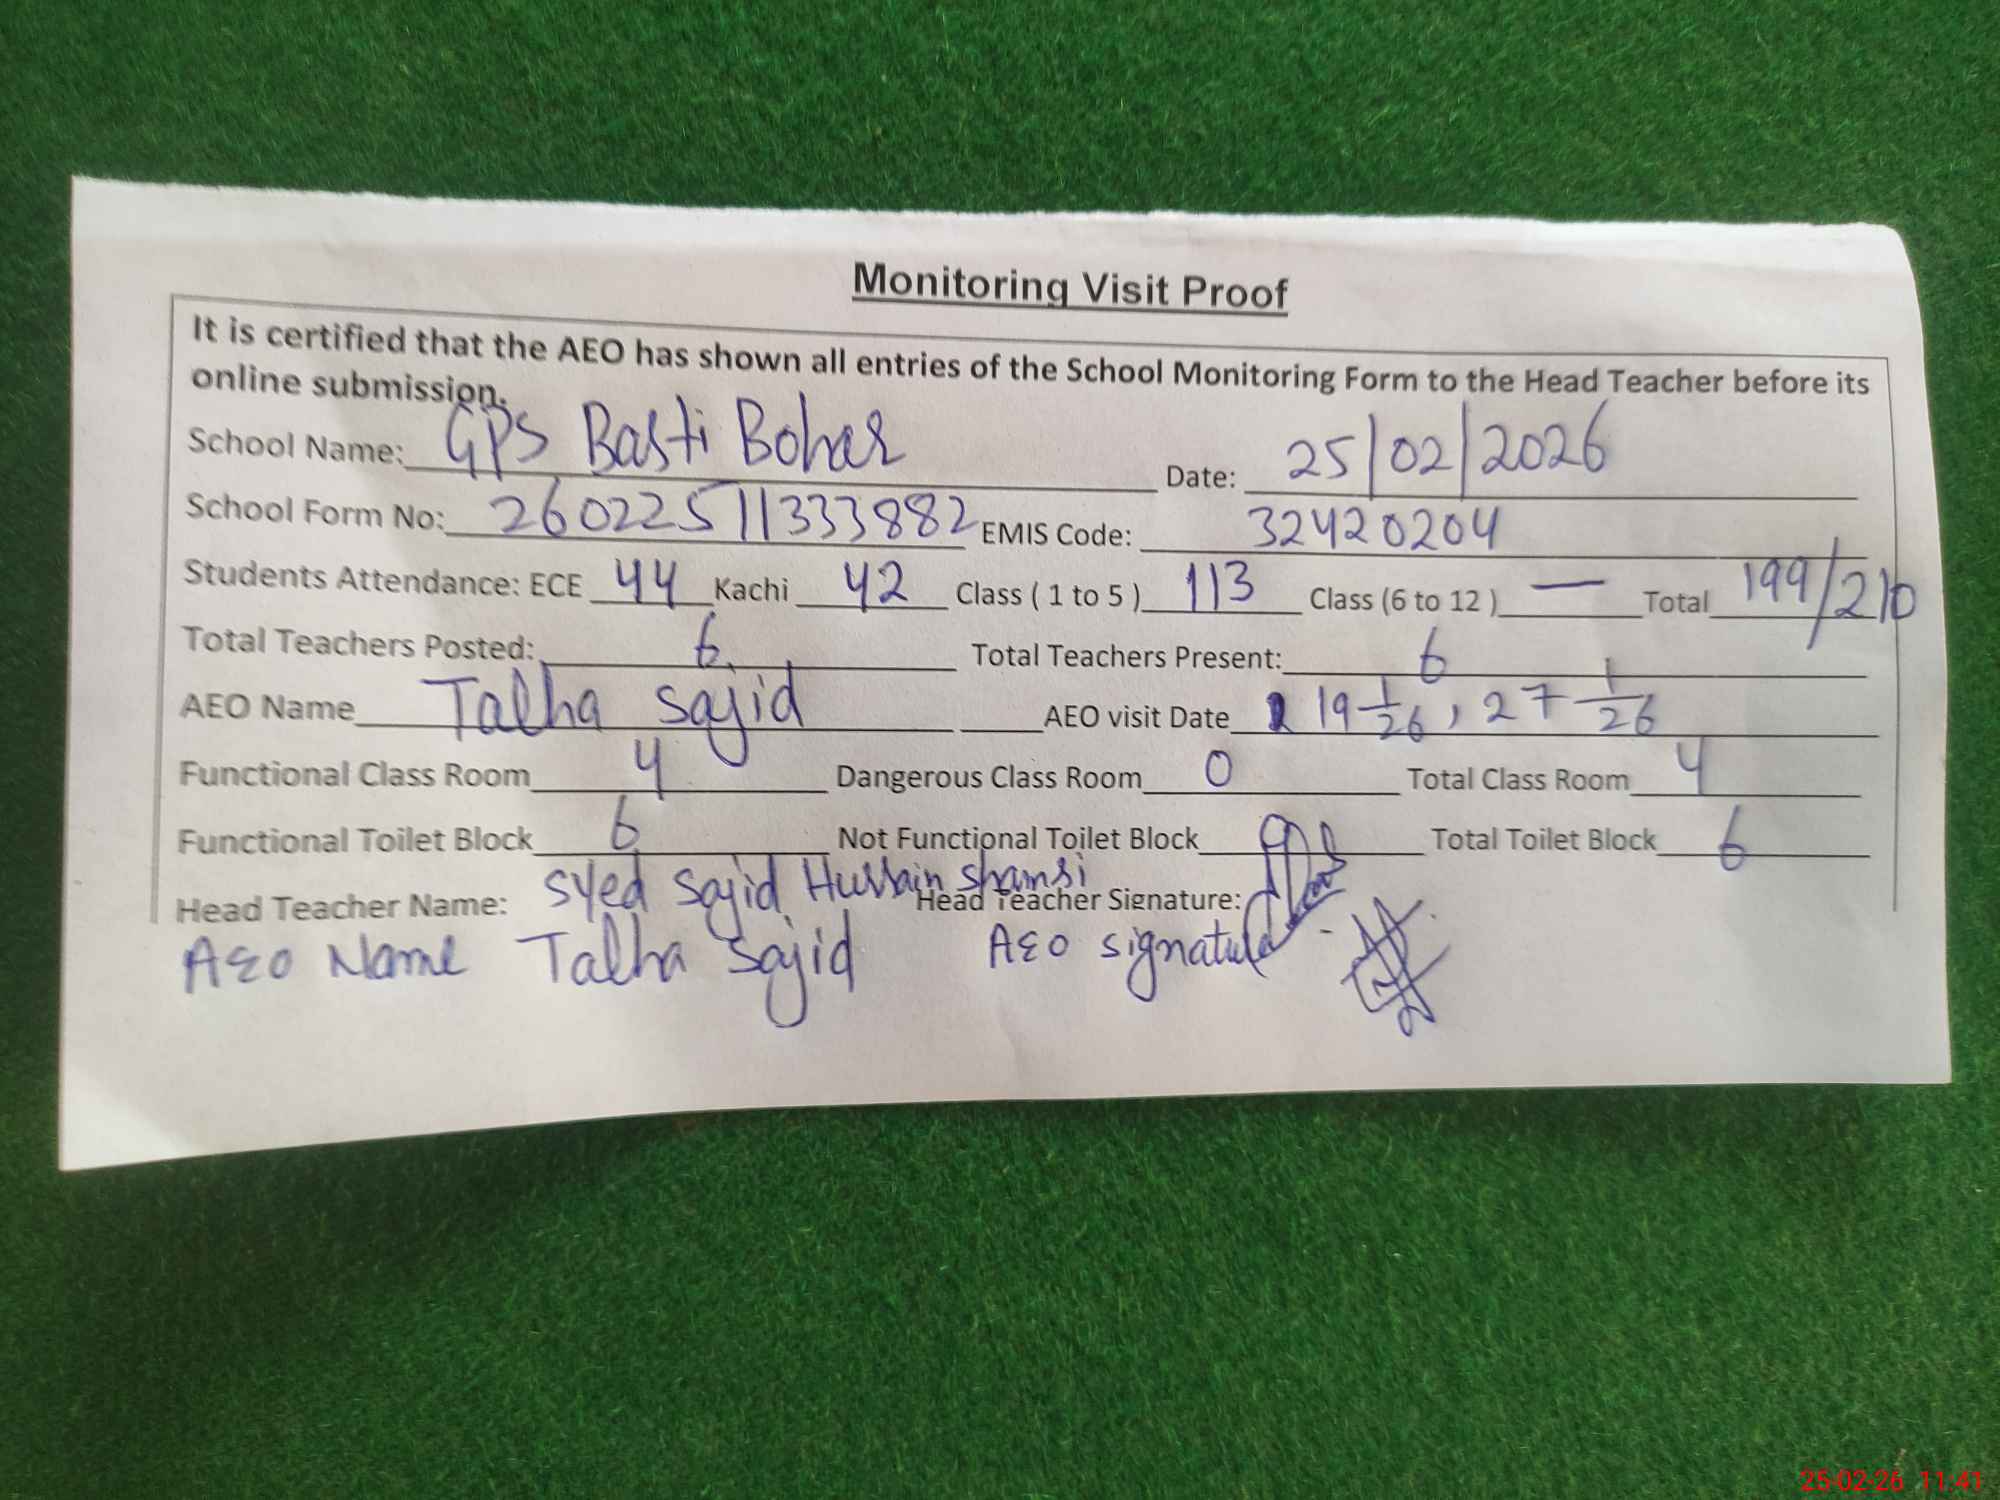 Monitoring Visit Proof
It is certified that the AEO has shown all entries of the School Monitoring Form to the Head Teacher before its
online submission.
School Name: GPS Basti Bohar Date: 25/02/2026
School Form No: 26022511333882 EMIS Code: 32420204
Students Attendance: ECE 44 Kachi 42 Class ( 1 to 5 ) 113 Class (6 to 12 ) — Total 199/210
Total Teachers Posted: 6 Total Teachers Present: 6
AEO Name Talha Sajid AEO visit Date 19 1/26, 27 1/26
Functional Class Room 4 Dangerous Class Room 0 Total Class Room 4
Functional Toilet Block 6 Not Functional Toilet Block Total Toilet Block 6
Head Teacher Name: Syed Sajid Hussain Shamsi Head Teacher Signature:
AEO Name Talha Sajid AEO signature
25-02-26 11:41